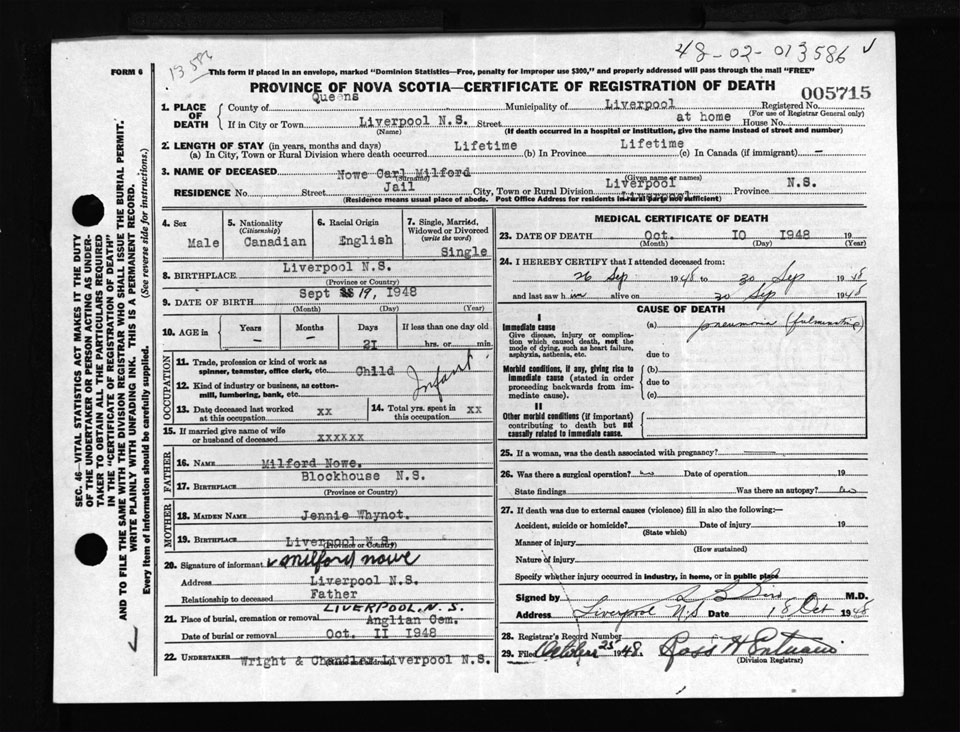 48-02-013586
13586
FORM 6
This form if placed in an envelope, marked "Dominion Statistics—Free, penalty for improper use $300," and properly addressed will pass through the mail "FREE"
PROVINCE OF NOVA SCOTIA—CERTIFICATE OF REGISTRATION OF DEATH
005715
1. PLACE OF DEATH
County of Queens Municipality of Liverpool Registered No.
(For use of Registrar General only)
If in City or Town Liverpool N.S. Street at home House No.
(Name) (If death occurred in a hospital or institution, give the name instead of street and number)
2. LENGTH OF STAY (in years, months and days)
(a) In City, Town or Rural Division where death occurred Lifetime (b) In Province Lifetime (c) In Canada (if immigrant) —
3. NAME OF DECEASED Nowe Carl Milford
(Surname) (Given name or names)
RESIDENCE No. Street Jail City, Town or Rural Division Liverpool Province N.S.
(Residence means usual place of abode. Post Office Address for residents in rural parts not sufficient)
Liverpool
4. Sex Male
5. Nationality (Citizenship) Canadian
6. Racial Origin English
7. Single, Married, Widowed or Divorced (write the word) Single
8. BIRTHPLACE Liverpool N.S.
(Province or Country)
9. DATE OF BIRTH Sept 19, 1948
(Month) (Day) (Year)
10. AGE in Years — Months — Days 21 If less than one day old hrs. or min.
OCCUPATION
11. Trade, profession or kind of work as spinner, teamster, office clerk, etc. Child Infant
12. Kind of industry or business, as cotton-mill, lumbering, bank, etc.
13. Date deceased last worked at this occupation xx
14. Total yrs. spent in this occupation xx
15. If married give name of wife or husband of deceased xxxxxx
FATHER
16. NAME Milford Nowe.
17. BIRTHPLACE Blockhouse N.S.
(Province or Country)
MOTHER
18. MAIDEN NAME Jennie Whynot.
19. BIRTHPLACE Liverpool N.S.
(Province or Country)
20. Signature of informant Milford Nowe
Address Liverpool N.S.
Relationship to deceased Father
LIVERPOOL. N. S.
21. Place of burial, cremation or removal Anglian Cem.
Date of burial or removal Oct. II 1948
22. UNDERTAKER Wright & Chandler Liverpool N.S.
MEDICAL CERTIFICATE OF DEATH
23. DATE OF DEATH Oct. IO 1948 19
(Month) (Day) (Year)
24. I HEREBY CERTIFY that I attended deceased from:
26 Sep 1948 to 30 Sep 1948
and last saw h im alive on 30 Sep 1948
CAUSE OF DEATH
I
Immediate cause
Give disease, injury or complication which caused death, not the mode of dying, such as heart failure, asphyxia, asthenia, etc.
(a) pneumonia
due to
Morbid conditions, if any, giving rise to immediate cause (stated in order proceeding backwards from immediate cause).
(b)
due to
(c)
II
Other morbid conditions (if important) contributing to death but not causally related to immediate cause.
25. If a woman, was the death associated with pregnancy?
26. Was there a surgical operation? no Date of operation 19
State findings Was there an autopsy? no
27. If death was due to external causes (violence) fill in also the following:—
Accident, suicide or homicide? Date of injury 19
(State which)
Manner of injury
(How sustained)
Nature of injury
Specify whether injury occurred in industry, in home, or in public place
Signed by M.D.
Address Liverpool N.S Date 18 Oct 1948
28. Registrar's Record Number
29. Filed October 25 1948. Ross H
(Division Registrar)
SEC. 46—VITAL STATISTICS ACT MAKES IT THE DUTY
OF THE UNDERTAKER OR PERSON ACTING AS UNDER-
TAKER TO OBTAIN ALL THE PARTICULARS REQUIRED
IN THE "CERTIFICATE OF REGISTRATION OF DEATH"
AND TO FILE THE SAME WITH THE DIVISION REGISTRAR WHO SHALL ISSUE THE BURIAL PERMIT.
WRITE PLAINLY WITH UNFADING INK. THIS IS A PERMANENT RECORD.
Every item of information should be carefully supplied. (See reverse side for instructions.)